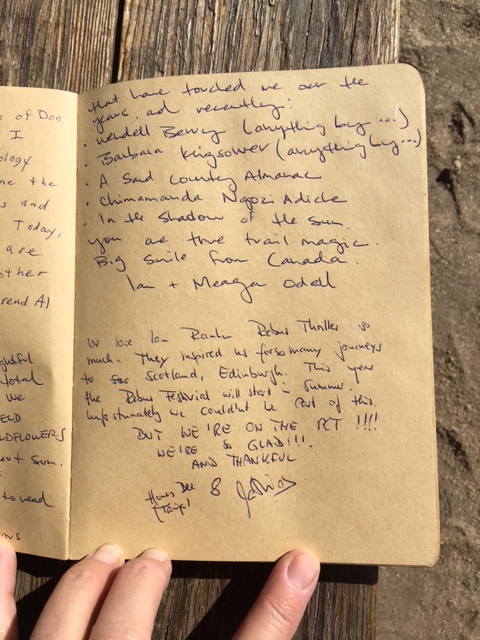 s of Don
I
ology
ne the
s and
Today,
are
other
rend Al
ghtful
total
we
ELD
LDFLOWERS
ert Sun.
to read
that have touched me over the
years, and recently:
• Wendell Berry (anything by ...)
• Barbara Kingsolver (anything by ...)
• A Sand County Almanac
• Chimamanda Ngozi Adichie
• In the Shadow of the Sun.
you are true trail magic.
Big smile from Canada.
Ian + Meagan Odell
We love Ian Rankin Rebus Thriller so
much. They inspired us for so many journeys
to see Scotland, Edinburgh. This year
the Rebus Festival will start in summer.
Unfortunately we couldn't be part of this.
BUT WE'RE ON THE PCT !!!!
WE'RE SO GLAD!!!.
AND THANKFUL
&